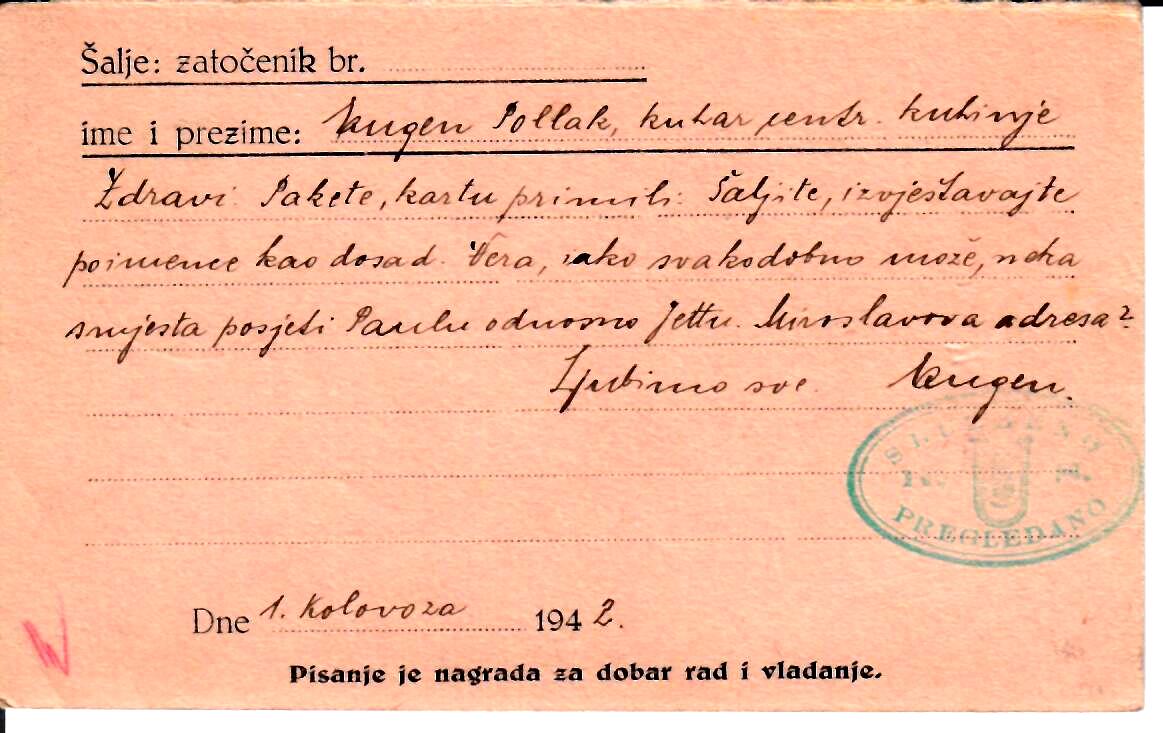 Šalje: zatočenik br.
ime i prezime: Eugen Pollak, kuhar centr. kuhinje
Zdravi. Pakete, kartu primili. Šaljite, izvještavajte
poimence kao dosad. Vera, ako svakodobno može, neka
smjesta posjeti Paulu odnosno Jettu. Miroslavova adresa?
Ljubimo sve. Eugen.
SLUŽBENO
PREGLEDANO
Dne 1. Kolovoza 1942.
Pisanje je nagrada za dobar rad i vladanje.